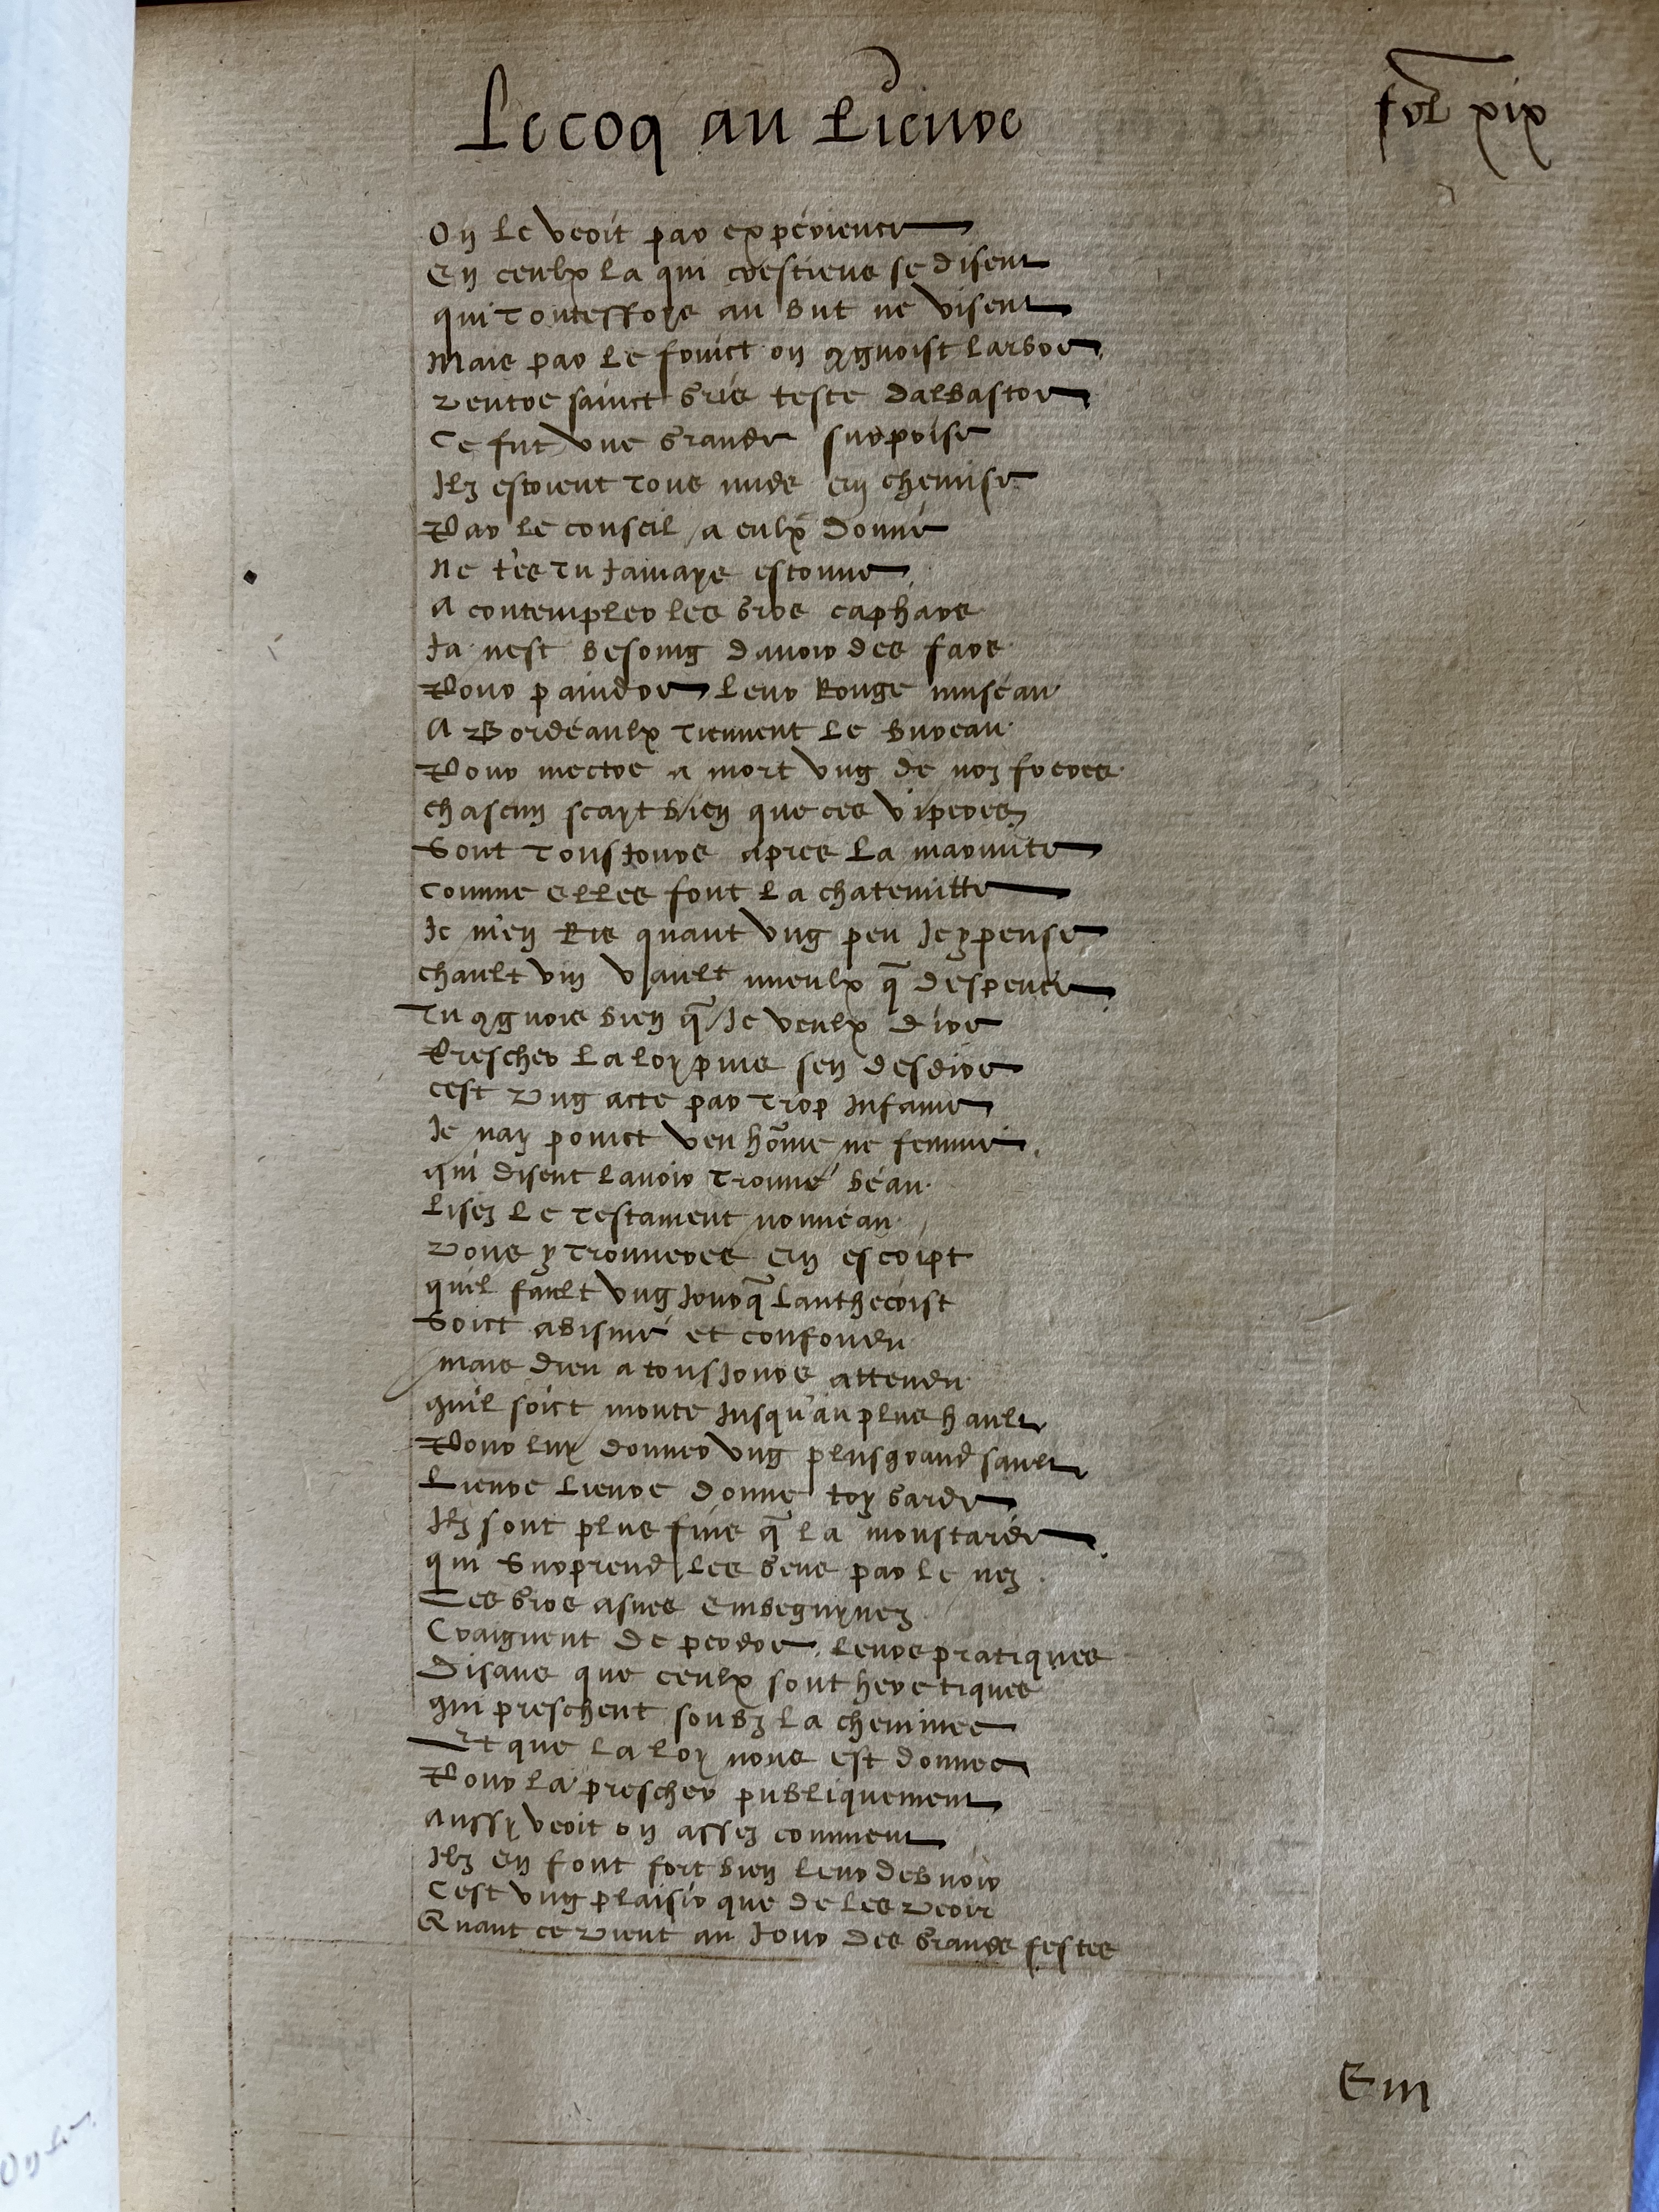 Le coq au Lievre
fol xix
On le veoit par experience
En ceulx la qui crestiens se disent
qui touteffoys au but ne visent
Mais par le fruict on 9gnoist larbre
Ventre sainct Gris teste dalbastre
Ce fut vne Grande surprise
Ilz estoient tous nudz en chemise
Par le conseil a eulx donné
Ne t'es tu jamays estonne
A contempler les Gros caphars
Ja nest besoing dauoir des fars
Pour paindre leur Rouge museau
A Bordeaulx tiennent le bureau
Pour mectre a mort vng de noz freres
chascun scayt bien que ces viperes
Sont tousjours apres la marmite
Comme elles font la chatemitte
Je m'en Ris quant vng peu Je y pense
chault vin vault mieulx q̃ despence
Tu 9gnois bien q̃ Je veulx dire
Prescher la loy puis sen desdire
cest vng acte par trop Infame
Je nay poinct veu hõme ne femme
qui disent lauoir trouué beau
Lisez le testament nouueau
Vous y trouueres en escript
quil fault vng Jour q̃ lanthecrist
Soict abismé et confondu
Mais dieu a tousjours attendu
quil soict monte Jusqu'au plus hault
Pour luy donner vng plus grand sault
Lievre Lievre donne toy Garde
Ilz sont plus fins q̃ la moustarde
qui Surprend les Gens par le nez
Ces Gros asnes Embeguynez
Craignent de perdre leurs pratiques
Disans que ceulx sont heretiques
qui preschent soubz la cheminee
Et que la loy nous est donnee
Pour la prescher publiquement
Aussy veoit on assez comment
Ilz en font fort bien leur debuoir
Cest vng plaisir que de les veoir
Quant ce vient au Jour des Grandes festes
E iii